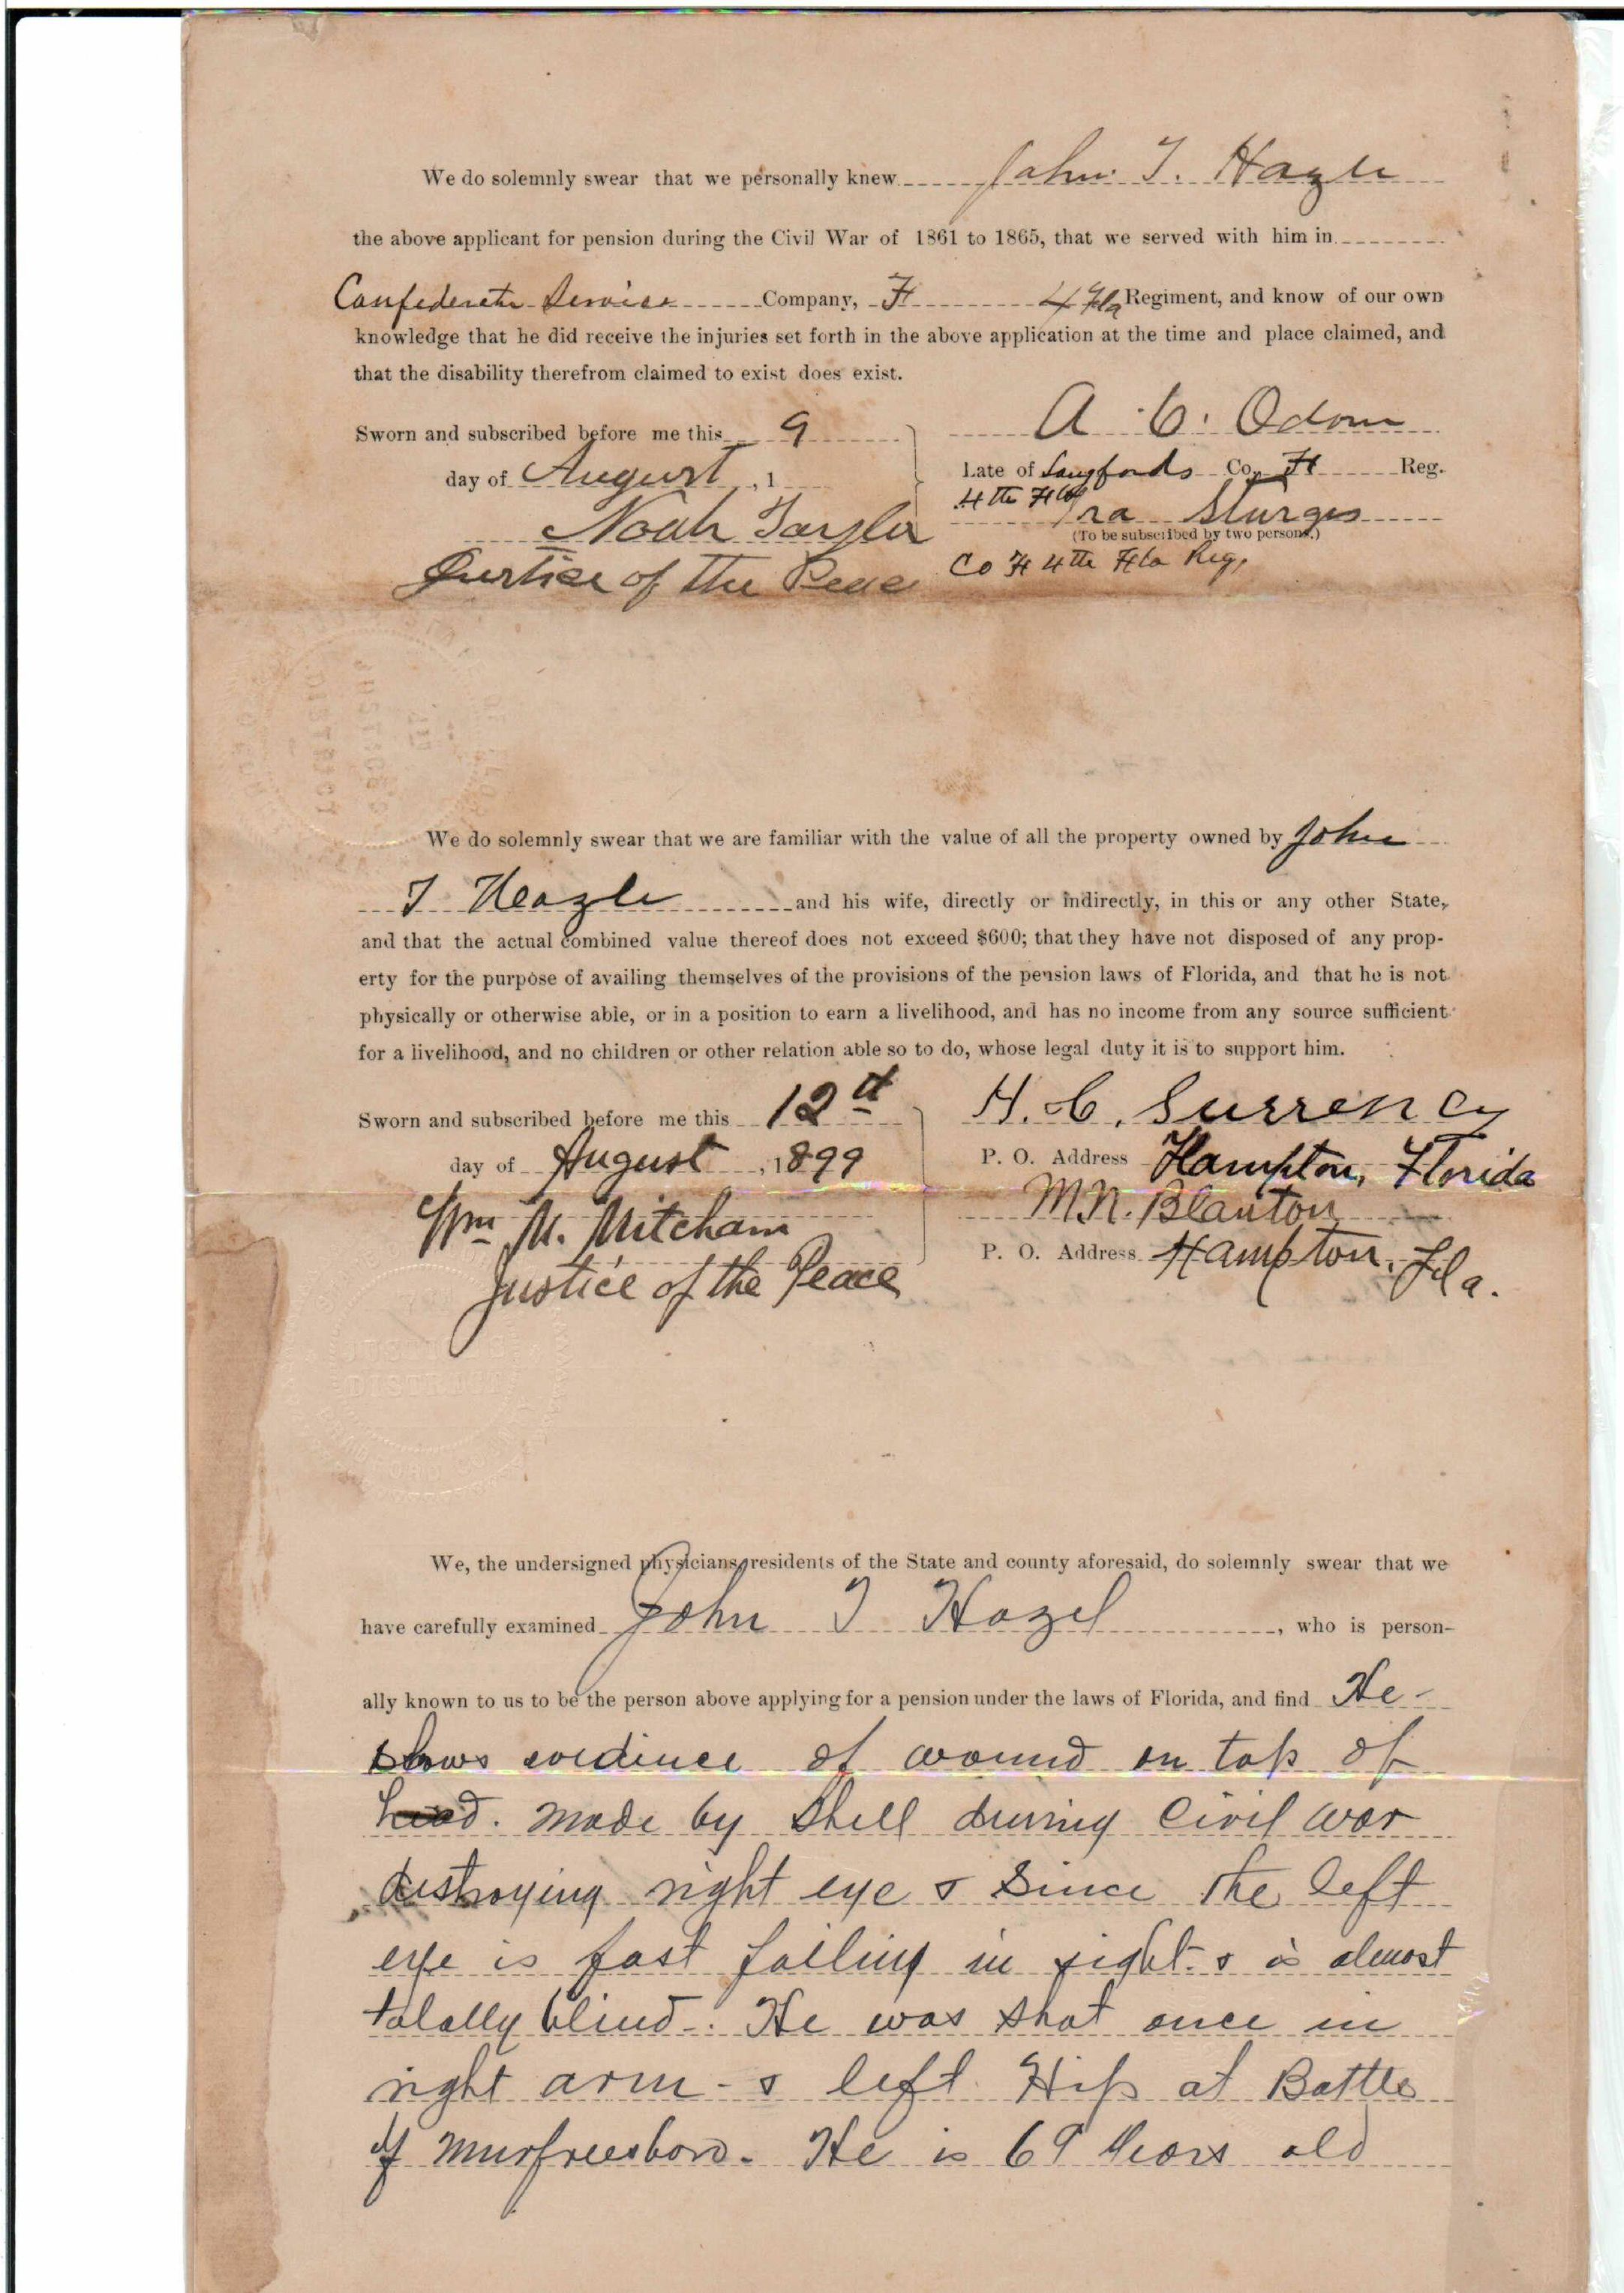 We do solemnly swear that we personally knew John T. Hazle
the above applicant for pension during the Civil War of 1861 to 1865, that we served with him in
Confederate Service Company, H 4 Fla Regiment, and know of our own
knowledge that he did receive the injuries set forth in the above application at the time and place claimed, and
that the disability therefrom claimed to exist does exist.
Sworn and subscribed before me this 9
day of August, 1
Noah Taylor
Justice of the Peace
A. C. Odom
Late of Langfords Co, H Reg.
4th Fla
Ira Sturges
(To be subscribed by two persons.)
Co H 4th Fla Reg.
We do solemnly swear that we are familiar with the value of all the property owned by John
T Heazle and his wife, directly or indirectly, in this or any other State,
and that the actual combined value thereof does not exceed $600; that they have not disposed of any prop-
erty for the purpose of availing themselves of the provisions of the pension laws of Florida, and that he is not
physically or otherwise able, or in a position to earn a livelihood, and has no income from any source sufficient
for a livelihood, and no children or other relation able so to do, whose legal duty it is to support him.
Sworn and subscribed before me this 12th
day of August, 1899
Wm M. Mitcham
Justice of the Peace
H. C. Surrency
P. O. Address Hampton, Florida
M. N. Blanton
P. O. Address Hampton. Fla.
JUSTICE
DISTRICT
BRADFORD COUN
We, the undersigned physicians, residents of the State and county aforesaid, do solemnly swear that we
have carefully examined John T Hazel, who is person-
ally known to us to be the person above applying for a pension under the laws of Florida, and find He
shows evidince of wound on top of
head. made by Shell during Civil War
destroying right eye & Since the left
eye is fast failing in sight. & is almost
totally blind. He was shot once in
right arm - & left Hip at Battle
of Murfreesboro. He is 69 Years old